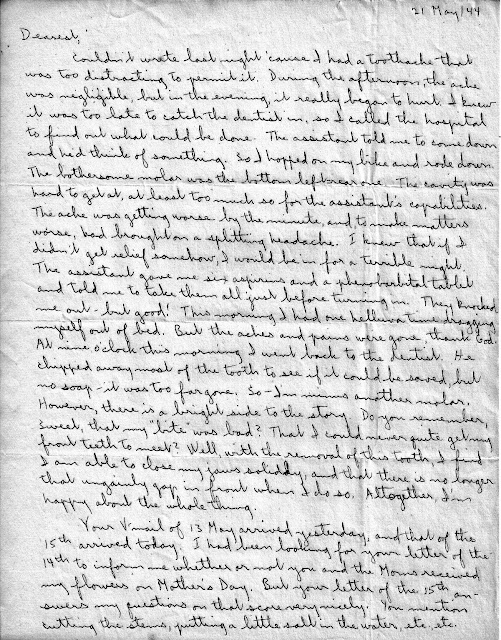 21 May/44
Dearest,
Couldn't wrote last night 'cause I had a toothache that
was too distracting to permit it. During the afternoon, the ache
was negligible, but in the evening, it really began to hurt. I knew
it was too late to catch the dentist in, so I called the hospital
to find out what could be done. The assistant told me to come down
and he'd think of something. So I hopped on my bike and rode down.
The bothersome molar was the bottom left rear one. The cavity was
hard to get at, at least too much so for the assistant's capabilities.
The ache was getting worse by the minute, and, to make matters
worse, had brought on a splitting headache. I knew that if I
didn't get relief somehow, I would be in for a terrible night.
The assistant gave me six aspirins and a phenobarbital tablet
and told me to take them all just before turning in. They knocked
me out - but good! This morning I had one helluva time dragging
myself out of bed. But the aches and pains were gone, thank God!
At nine o'clock this morning I went back to the dentist. He
chipped away most of the tooth to see if it could be saved, but
no soap - it was too far gone. So - I'm minus another molar.
However, there is a bright side to the story. Do you remember,
Sweet, that my "bite" was bad? That I could never quite get my
front teeth to meet? Well, with the removal of this tooth, I find
I am able to close my jaws solidly, and that there is no longer
that ungainly gap in front when I do so. Altogether, I'm
happy about the whole thing.
Your Vmail of 13 May arrived yesterday, and that of the
15th arrived today. I had been looking for your letter of the
14th to inform me whether or not you and the Moms received
my flowers on Mother's Day. But your letter of the 15th an-
swers my questions on that score very nicely. You mention
cutting the stems, putting a little salt in the water, etc, etc.